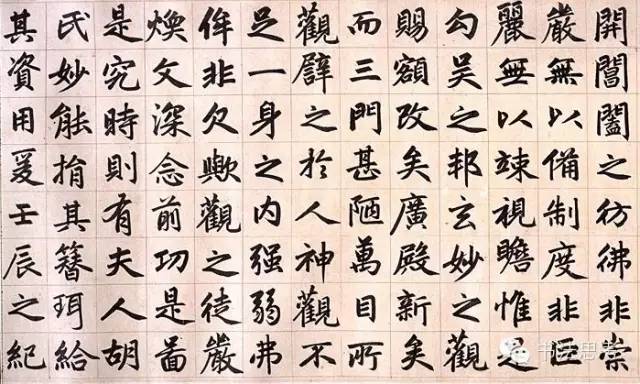 開閶闔之彷彿非崇
嚴無以備制度非巨
麗無以竦視瞻惟是
勾吳之邦玄妙之觀
賜額改矣廣殿新矣
而三門甚陋萬目所
觀譬之於人神觀不
足一身之内强弱弗
侔非欠歟觀之徒嚴
煥文深念前功是啚
是究時則有夫人胡
氏妙能捐其簪珥給
其資用爰壬辰之紀
书法思考